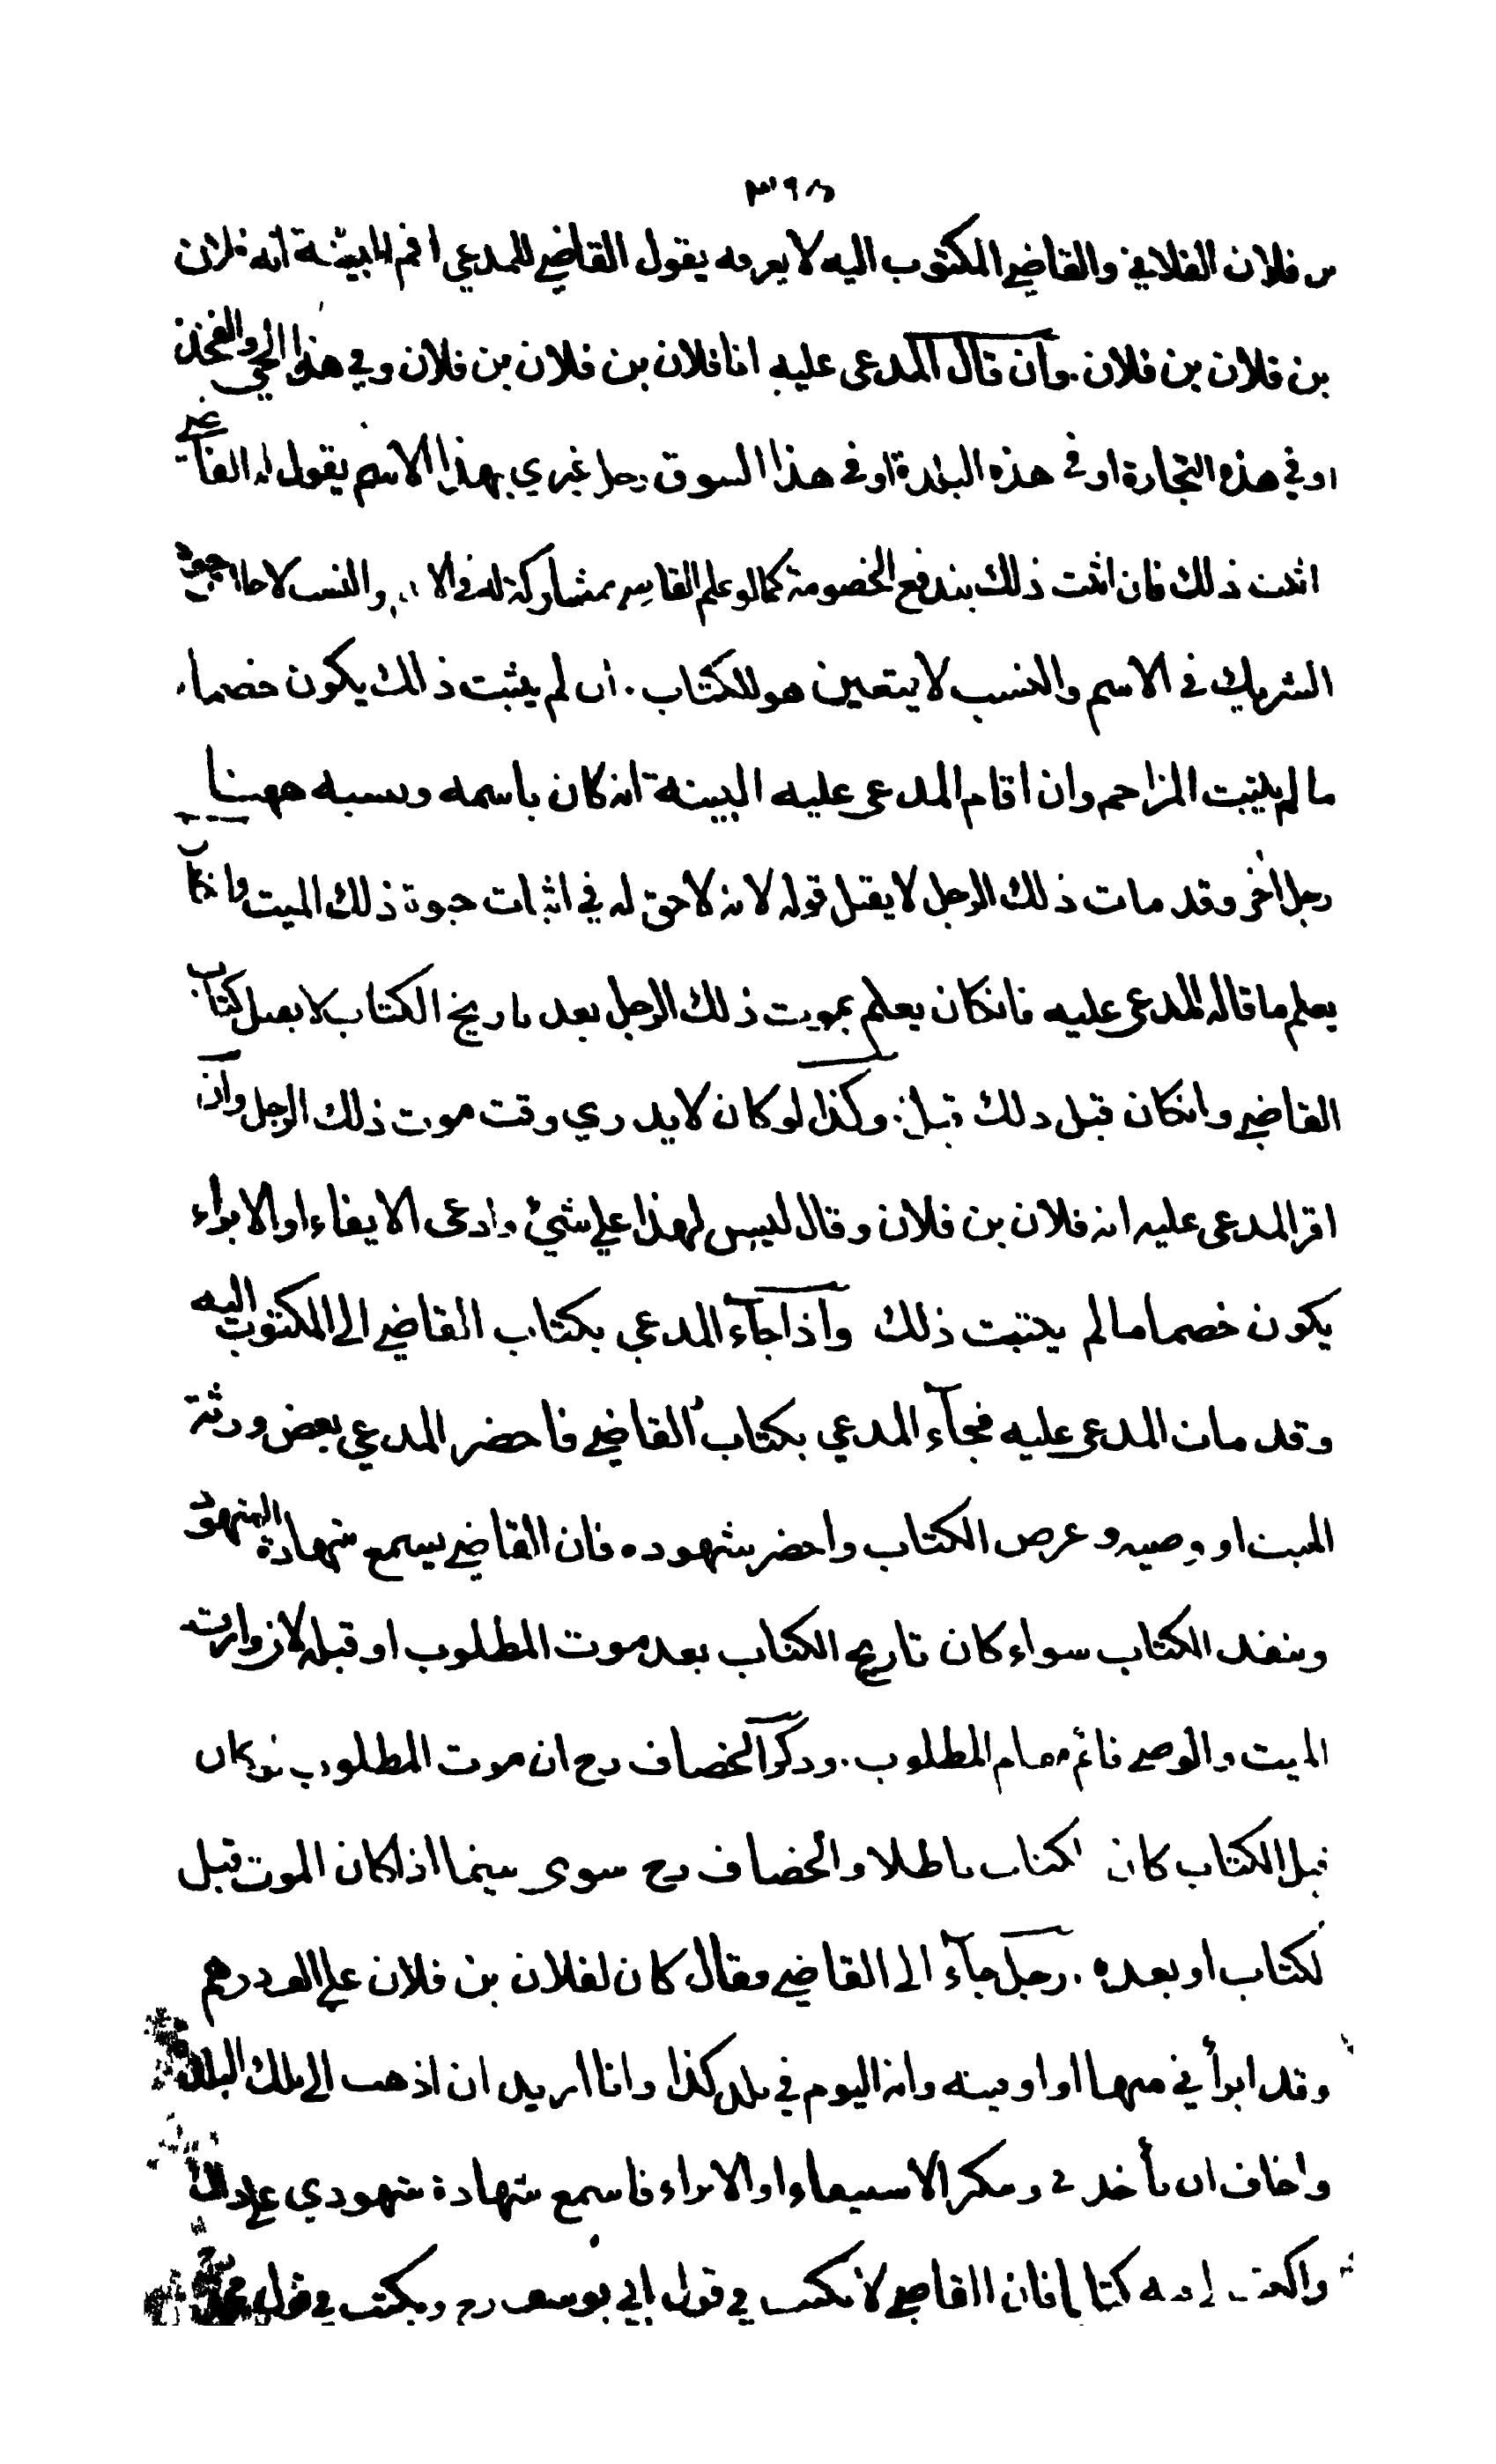 ٣٩٥
من فلان الفلاني والقاضي المكتوب اليه لا يعرفه يقول القاضي للمدعي اقم البينة انه فلان
بن فلان بن فلان . وان قال المدعى عليه انا فلان بن فلان بن فلان وفي هذا الحي والفخذ
او في هذه التجارة او في هذه البلدة او في هذا السوق رجل غيري بهذا الاسم يقول له القاضي
اثبت ذلك فان اثبت ذلك يندفع الخصومة كما لو علم القاضي بمشاركة له في الاسم والنسب لا حال وجود
الشريك في الاسم والنسب لا يتعين هو للكتاب . وان لم يثبت ذلك يكون خصما
ما لم يثبت المزاحم وان اقام المدعى عليه البينة انه كان باسمه ونسبه ههنا
رجل اخر وقد مات ذلك الرجل لا يقبل قوله لانه لا حق له في اثبات حيوة ذلك الميت وان كان
يعلم ما قاله المدعى عليه فانكان يعلم بموت ذلك الرجل بعد تاريخ الكتاب لا يقبل كتاب
القاضي وانكان قبل ذلك قبل . وكذا لو كان لا يدري وقت موت ذلك الرجل وان
اقر المدعى عليه انه فلان بن فلان وقال ليس لهذا علي شيئ وادعى الايفاء او الابراء
يكون خصما ما لم يثبت ذلك واذا جآء المدعي بكتاب القاضي الى المكتوب اليه
وقد مات المدعى عليه فجآء المدعي بكتاب القاضي فاحضر المدعي بعض ورثة
الميت او وصيه وعرض الكتاب واحضر شهوده فان القاضي يسمع شهادة الشهود
وينفذ الكتاب سواء كان تاريخ الكتاب بعد موت المطلوب او قبله لان وارث
الميت والوصي قائم مقام المطلوب . وذكر الخصاف رح ان موت المطلوب لو كان
قبل الكتاب كان الكتاب باطلا والخصاف رح سوى بينما اذا كان الموت قبل
الكتاب او بعده . رجل جآء الى القاضي وقال كان لفلان بن فلان علي الف درهم
وقد ابرأني منها او اوفيته وانه اليوم في بلد كذا وانا اريد ان اذهب الى تلك البلدة
واخاف ان يأخذني وينكر الاستيفاء او الابراء فاسمع شهادة شهودي على ذلك
واكتب اليه كتابا فان القاضي لا يكتب في قول ابي يوسف رح ويكتب في قول محمد